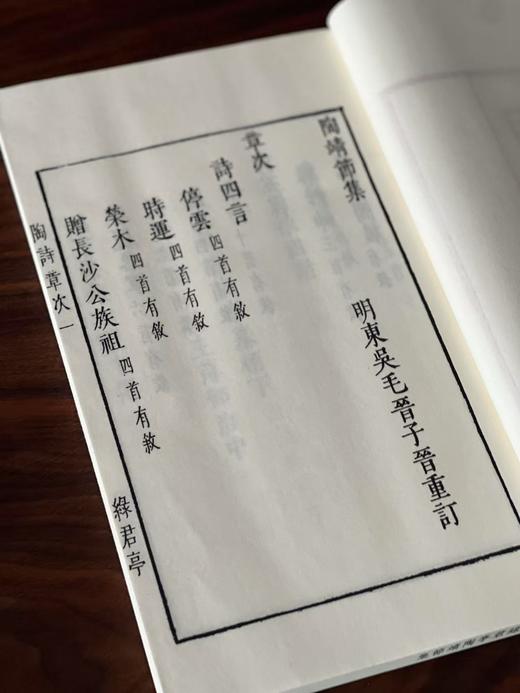 陶靖節集
明東吳毛晉子晉重訂
章次
詩四言
停雲 四首有敘
時運 四首有敘
榮木 四首有敘
贈長沙公族祖 四首有敘
陶詩章次 一
綠君亭